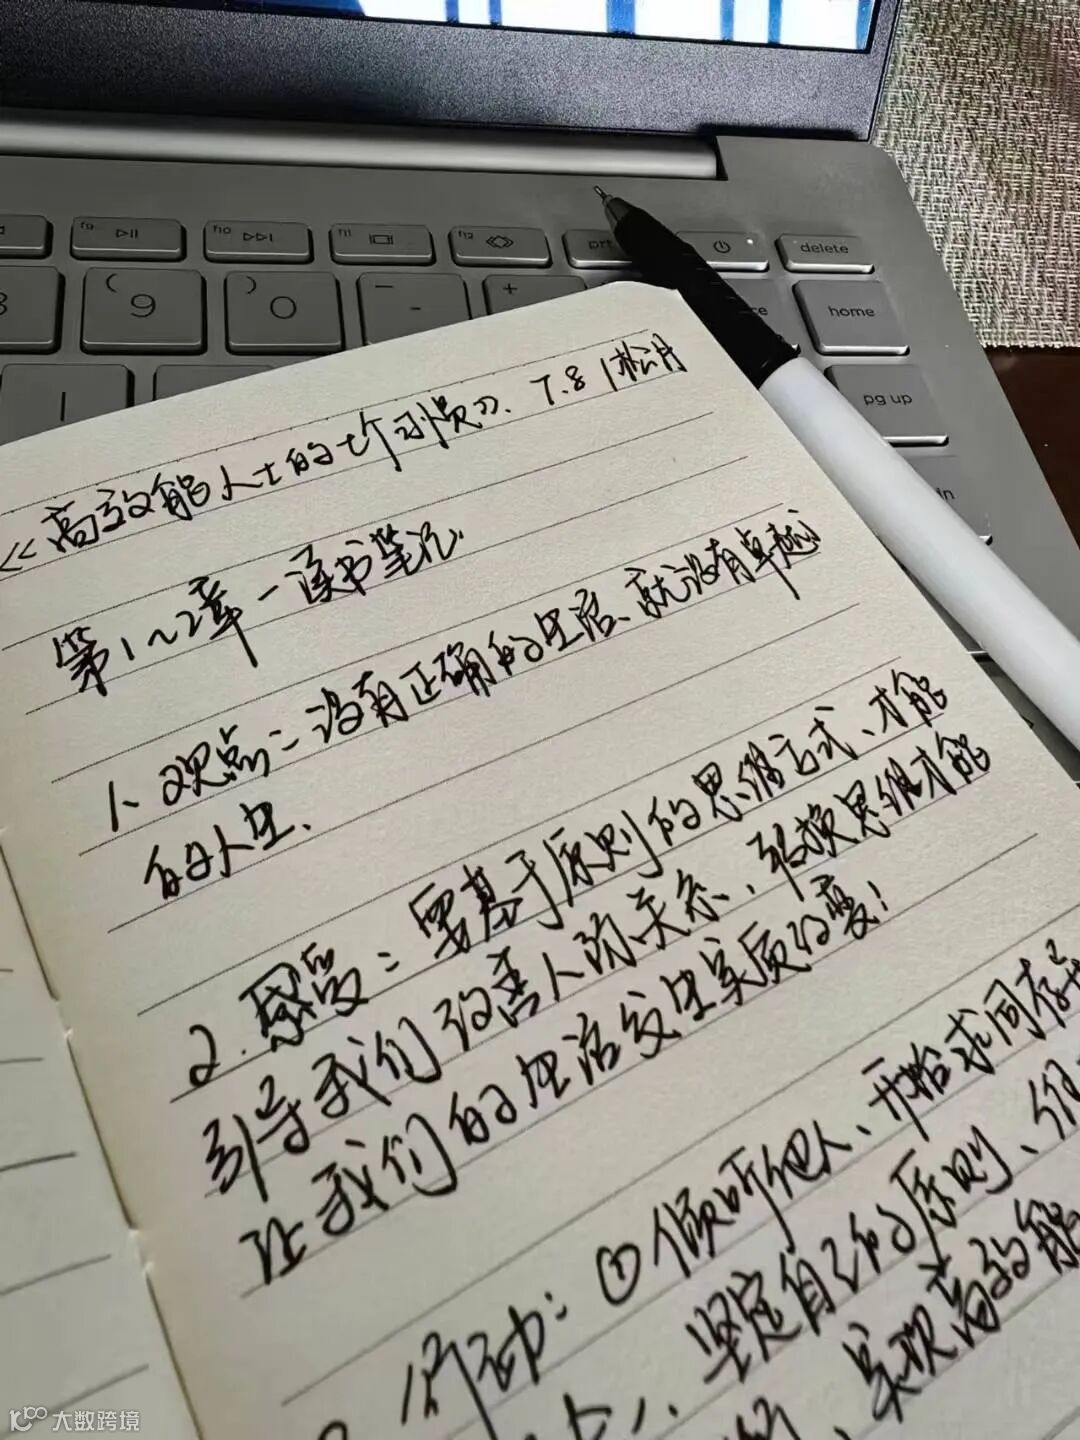 f9
f10
f11
f12
prt
delete
9
0
-
+
home
pg up
《高效能人士的七个习惯》. 7.8 |松月
第1~2章-读书笔记.
1、观点:没有正确的生活、就没有卓越
的人生.
2.感受:要基于原则的思维方式、才能
引导我们改善人际关系、转换思维才能
让我们的生活发生实质改变!
行动:①倾听他人、开始求同存异
坚定自己的原则、
实现高效能
大数跨境